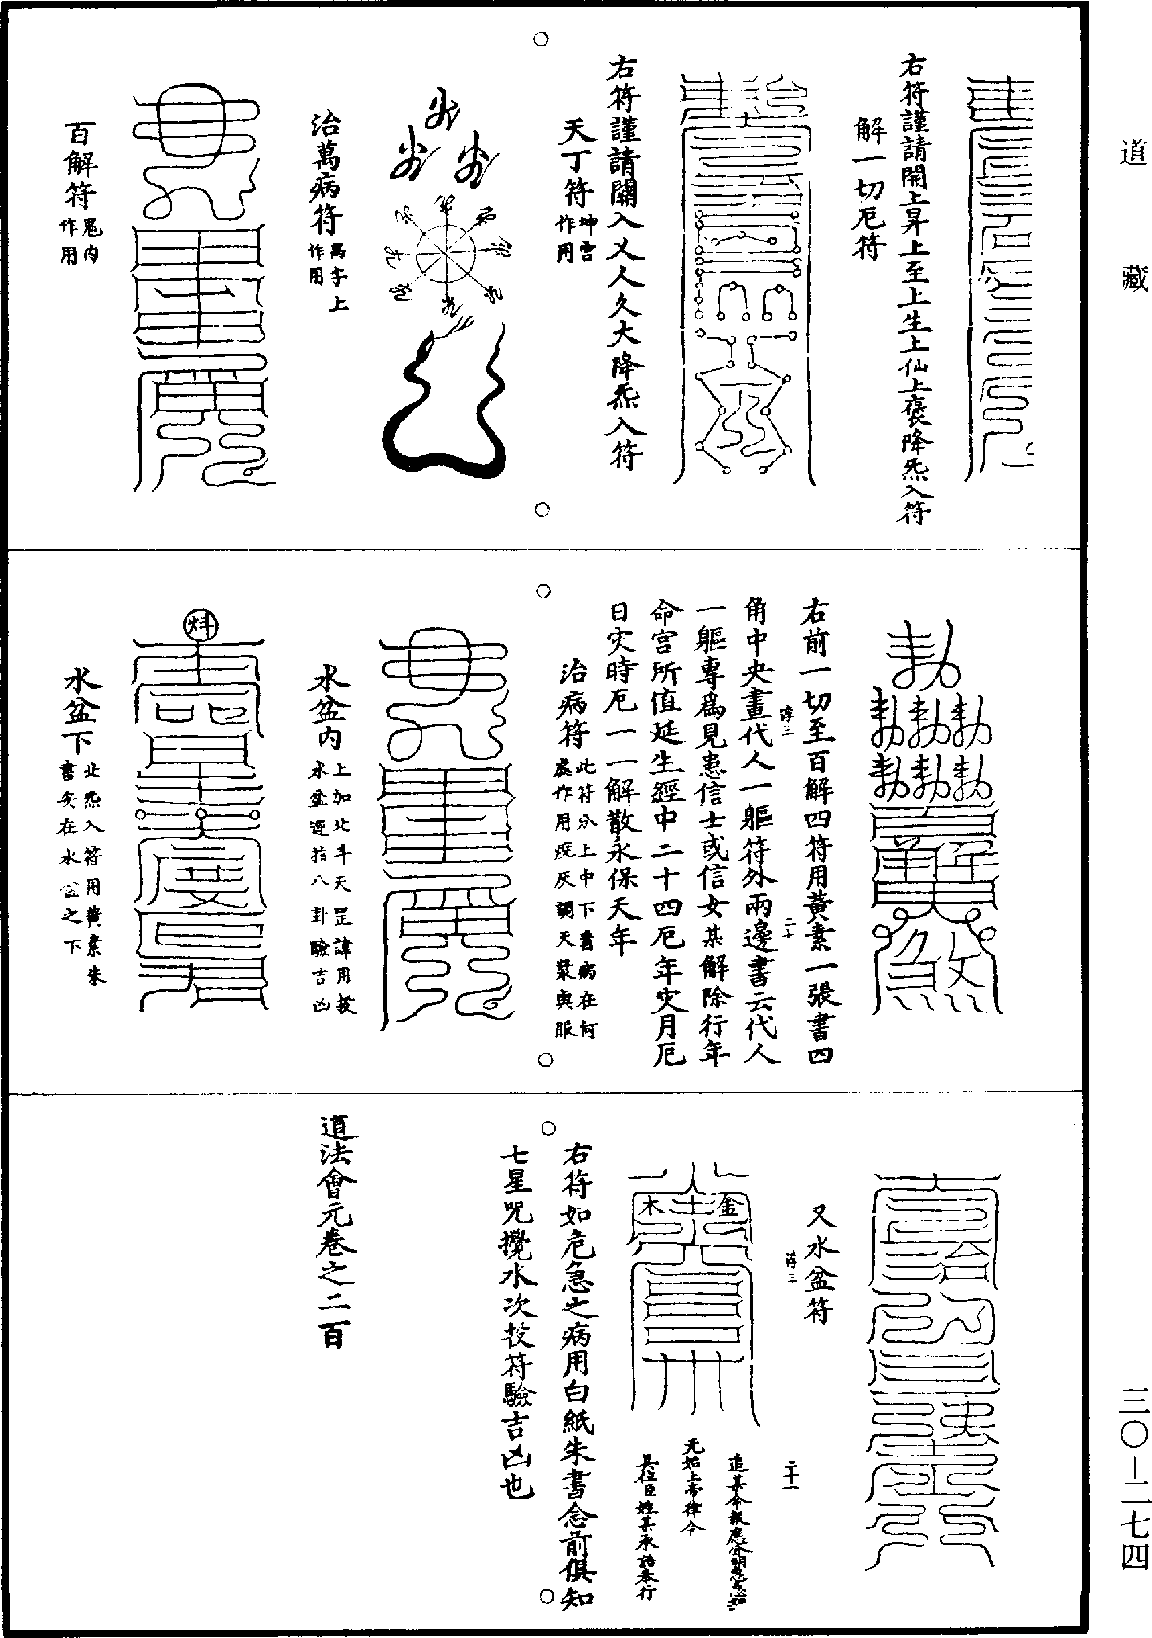 道藏
右符謹請開上昇上至上生上仙上褒降炁入符
解一切厄符
右符謹請關入乂人久大降炁入符
天丁符
坤宮
作用
治萬病符
萬字上
作用
百解符
作用
右前一切至百解四符用黃素一張書四
角中央畫代人一軀符外兩邊書云代人
一軀專為見患信士或信女某解除行年
命宮所值延生經中二十四厄年災月厄
日災時厄一一解散永保天年
二十
治病符
此符分上中下書病在何
處作用燒灰調天漿與服
水盆內
上加北斗天罡諱用投
水盆運指八卦驗吉凶
水盆下
北炁入符用黃素朱
書矣在水盆之下
又水盆符
二十一
金
木
元始上帝律令
右符如危急之病用白紙朱書念前俱知
七星咒攪水次投符驗吉凶也
道法會元卷之二百
三〇-二七四